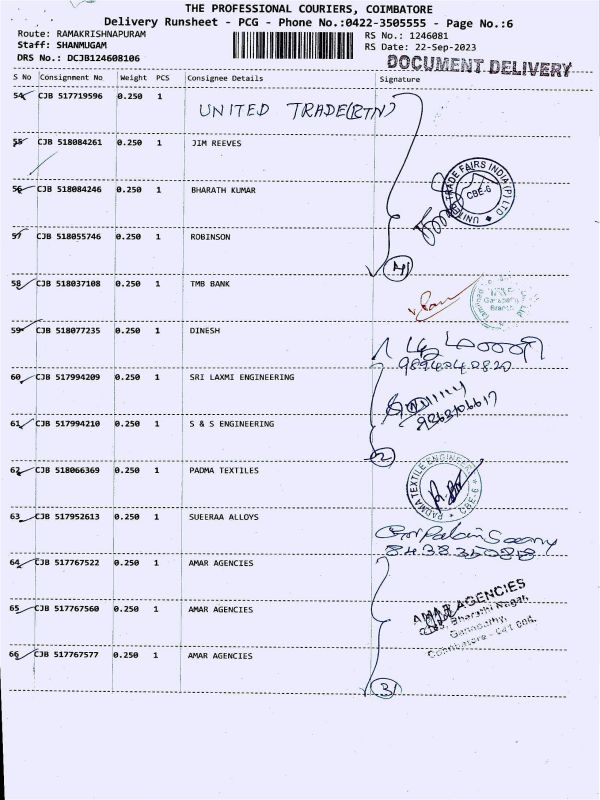 THE PROFESSIONAL COURIERS, COIMBATORE
Delivery Runsheet - PCG - Phone No.:0422-3505555 - Page No.:6
Route: RAMAKRISHNAPURAM RS No.: 1246081
Staff: SHANMUGAM RS Date: 22-Sep-2023
DRS No.: DCJB124608106 DOCUMENT DELIVERY
S No Consignment No Weight PCS Consignee Details Signature
54 CJB 517719596 0.250 1 UNITED TRADE(RTN)
55 CJB 518084261 0.250 1 JIM REEVES
56 CJB 518084246 0.250 1 BHARATH KUMAR
UNITED TRADE FAIRS INDIA (P) LTD
CBE-6
57 CJB 518055746 0.250 1 ROBINSON
4
58 CJB 518037108 0.250 1 TMB BANK
Ganapathy
Branch
59 CJB 518077235 0.250 1 DINESH
60 CJB 517994209 0.250 1 SRI LAXMI ENGINEERING
61 CJB 517994210 0.250 1 S & S ENGINEERING
2
62 CJB 518066369 0.250 1 PADMA TEXTILES
PADMA TEXTILE ENGINEER CBE-6
63 CJB 517952613 0.250 1 SUEERAA ALLOYS
64 CJB 517767522 0.250 1 AMAR AGENCIES
65 CJB 517767560 0.250 1 AMAR AGENCIES
AMAR AGENCIES
Bharathi Nagar,
Ganapathy,
Coimbatore - 641 006.
66 CJB 517767577 0.250 1 AMAR AGENCIES
3